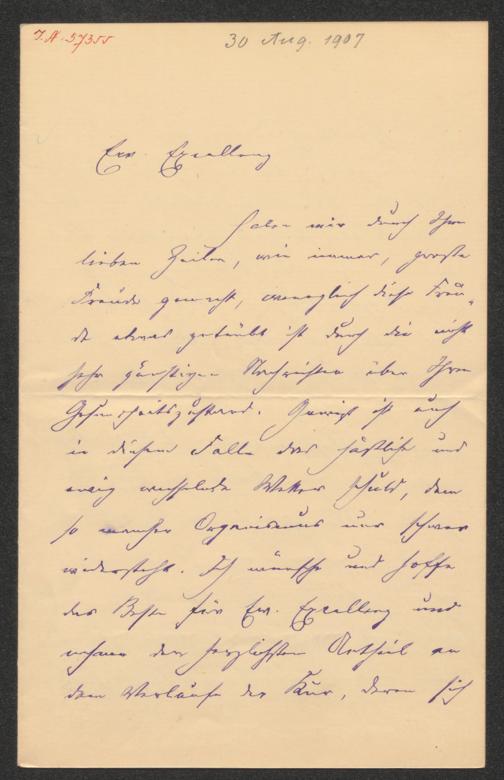 I.N. 37355
30 Aug. 1907
Ew. Excellenz
haben mir durch Ihre
lieben Zeilen, wie immer, große
Freude gemacht, wenngleich diese Freu-
de etwas getrübt ist durch die nicht
sehr günstigen Nachrichten über Ihren
Gesundheitszustand. Gewiß ist auch
in diesem Falle das häßliche und
ewig wechselnde Wetter schuld, dem
so mancher Organismus nur schwer
widersteht. Ich wünsche und hoffe
das Beste für Ew. Excellenz und
nehme den herzlichsten Antheil an
dem Verlaufe der Kur, deren sich